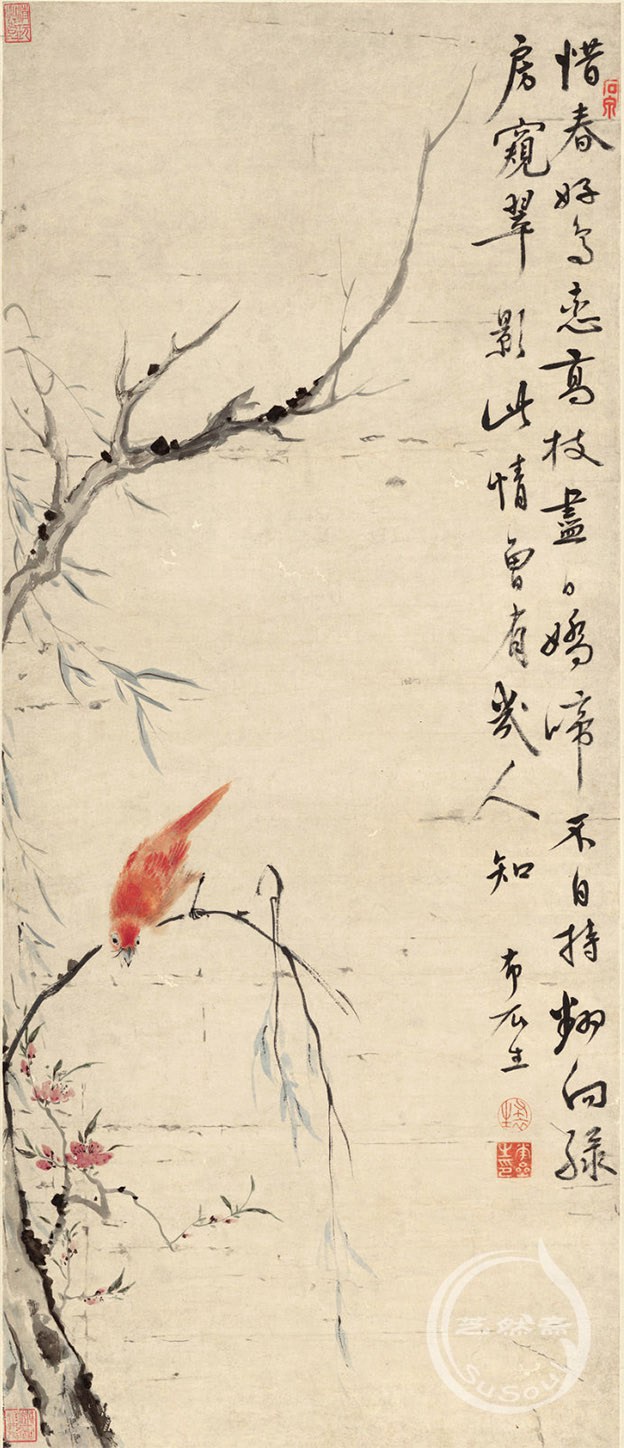 惜春好鳥恋高枝盡日嬌啼不自持翻向綠
房窺翠影此情曾有幾人知
布衣生
SuSoul